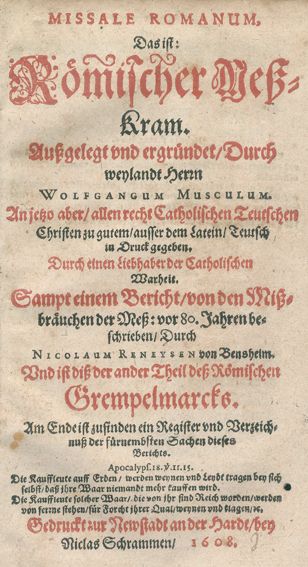 MISSALE ROMANUM.
Das ist:
Römischer Meß-
Kram.
Außgelegt vnd ergründet/ Durch
weylandt Herrn
WOLFGANGUM MUSCULUM.
An jetzo aber/ allen recht Catholischen Teutschen
Christen zu gutem/ ausser dem Latein/ Teutsch
in Druck gegeben.
Durch einen Liebhaber der Catholischen
Warheit.
Sampt einem Bericht/ von den Miß-
bräuchen der Meß: vor 80. Jahren be-
schrieben/ Durch
NICOLAUM RENEYSEN von Bensheim.
Vnd ist diß der ander Theil deß Römischen
Grempelmarcks.
Am Ende ist zufinden ein Register vnd Verzeich-
nuß der fürnembsten Sachen dieses
Berichts.
Apocalyps. 18. v. 11. 15.
Die Kauffleute auff Erden/ werden weynen vnd Leydt tragen bey sich
selbst/ daß ihre Waar niemandt mehr kauffen wird.
Die Kauffleute solcher Waar/ die von ihr sind Reich worden/ werden
von ferne stehen/ für Forcht ihrer Qual/ weynen vnd klagen/ ꝛc.
Gedruckt zur Newstadt an der Hardt/ bey
Niclas Schrammen/ 1608.